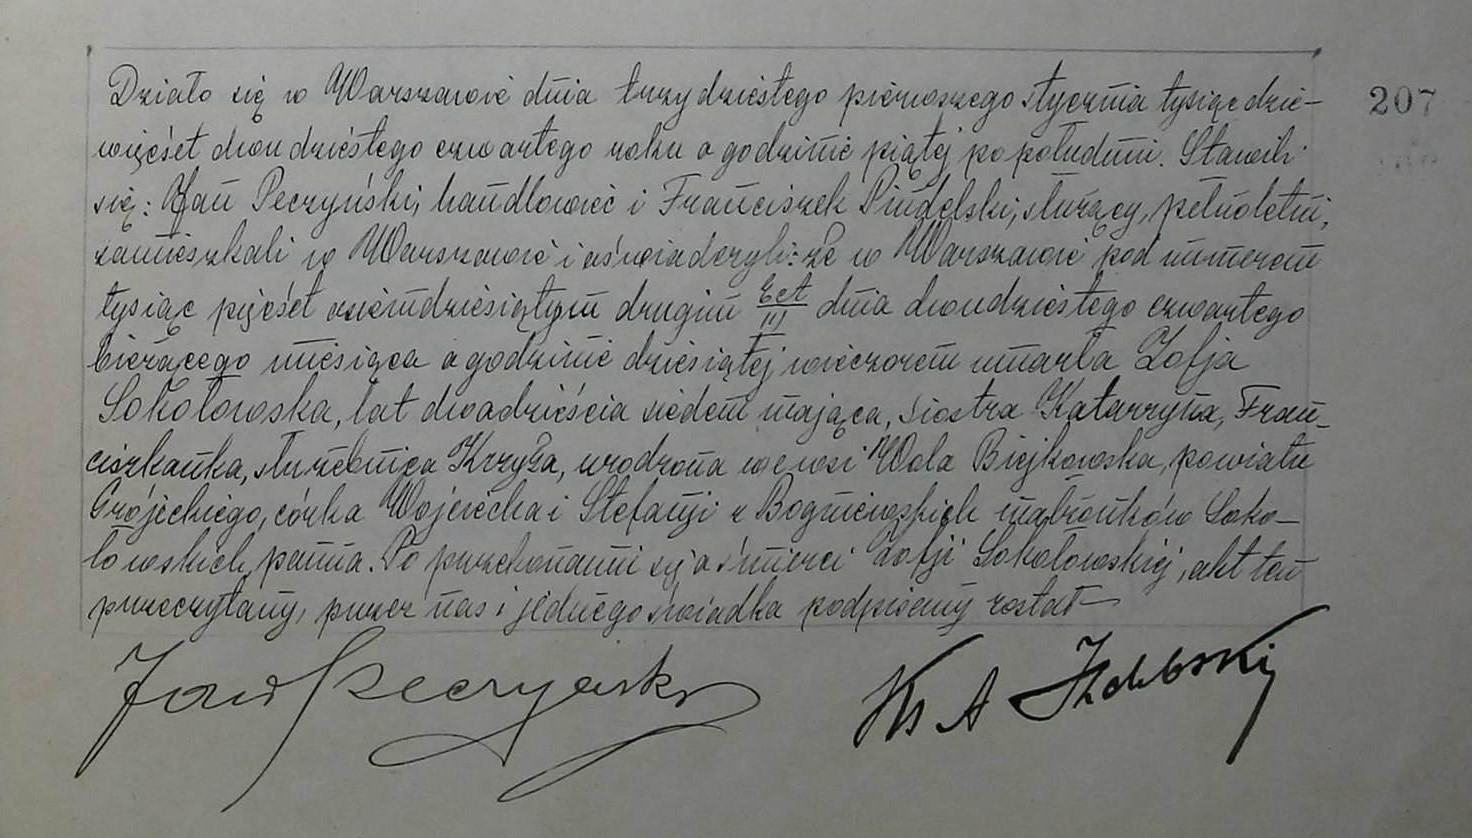 Działo się w Warszawie dnia trzydziestego pierwszego stycznia tysiąc dzie-
207
więćset dwudziestego czwartego roku o godzinie piątej popołudniu. Stawili
się: Jan Peczyński, handlowiec i Franciszek Pindelski, służący, pełnoletni,
zamieszkali w Warszawie i oświadczyli: że w Warszawie pod numerem
tysiąc pięćset osiemdziesiątym drugim dnia dwudziestego czwartego
bieżącego miesiąca o godzinie dziesiątej wieczorem umarła Zofja
Sokołowska, lat dwadzieścia siedem mająca, siostra Katarzyna, Fran-
ciszkanka, służebnica Krzyża, urodzona we wsi Wola Biejkowska, powiatu
Grójeckiego, córka Wojciecha i Stefanji z Bogniewskich małżonków Soko-
łowskich, panna. Po przekonaniu się o śmierci Zofji Sokołowskiej, akt ten
przeczytany, przez nas i jednego świadka podpisany został
Jan Peczyński
Ks A